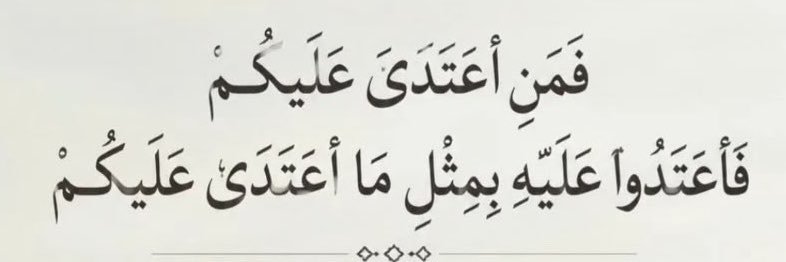 فَمَنِ أعَتَدَىَ عَلَيكُمْ
فَأعَتَدُوا عَلَيّهِ بِمِثْلِ مَا أعَتَدَىٰ عَلَيكُمْ